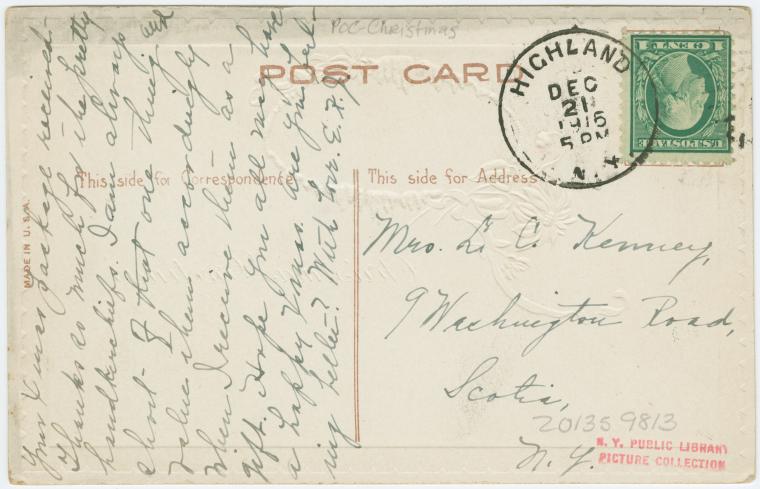 PoC-Christmas
POST CARD
HIGHLAND
DEC
21
1916
5 PM
N.Y.
1 CENT 1
U.S. POSTAGE
This side for Correspondence
This side for Address
MADE IN U.S.A.
Your Xmas package received.
Thanks so much for the pretty
handkerchiefs. I am always
short of that one thing and
value them accordingly
when I receive them as a
gift. Hope you all may have
a happy Xmas. Are you feel-
ing better? With love. E.
Mrs. L. C. Kenney,
9 Washington Road,
Scotia,
N.Y.
201359813
N. Y. PUBLIC LIBRARY
PICTURE COLLECTION